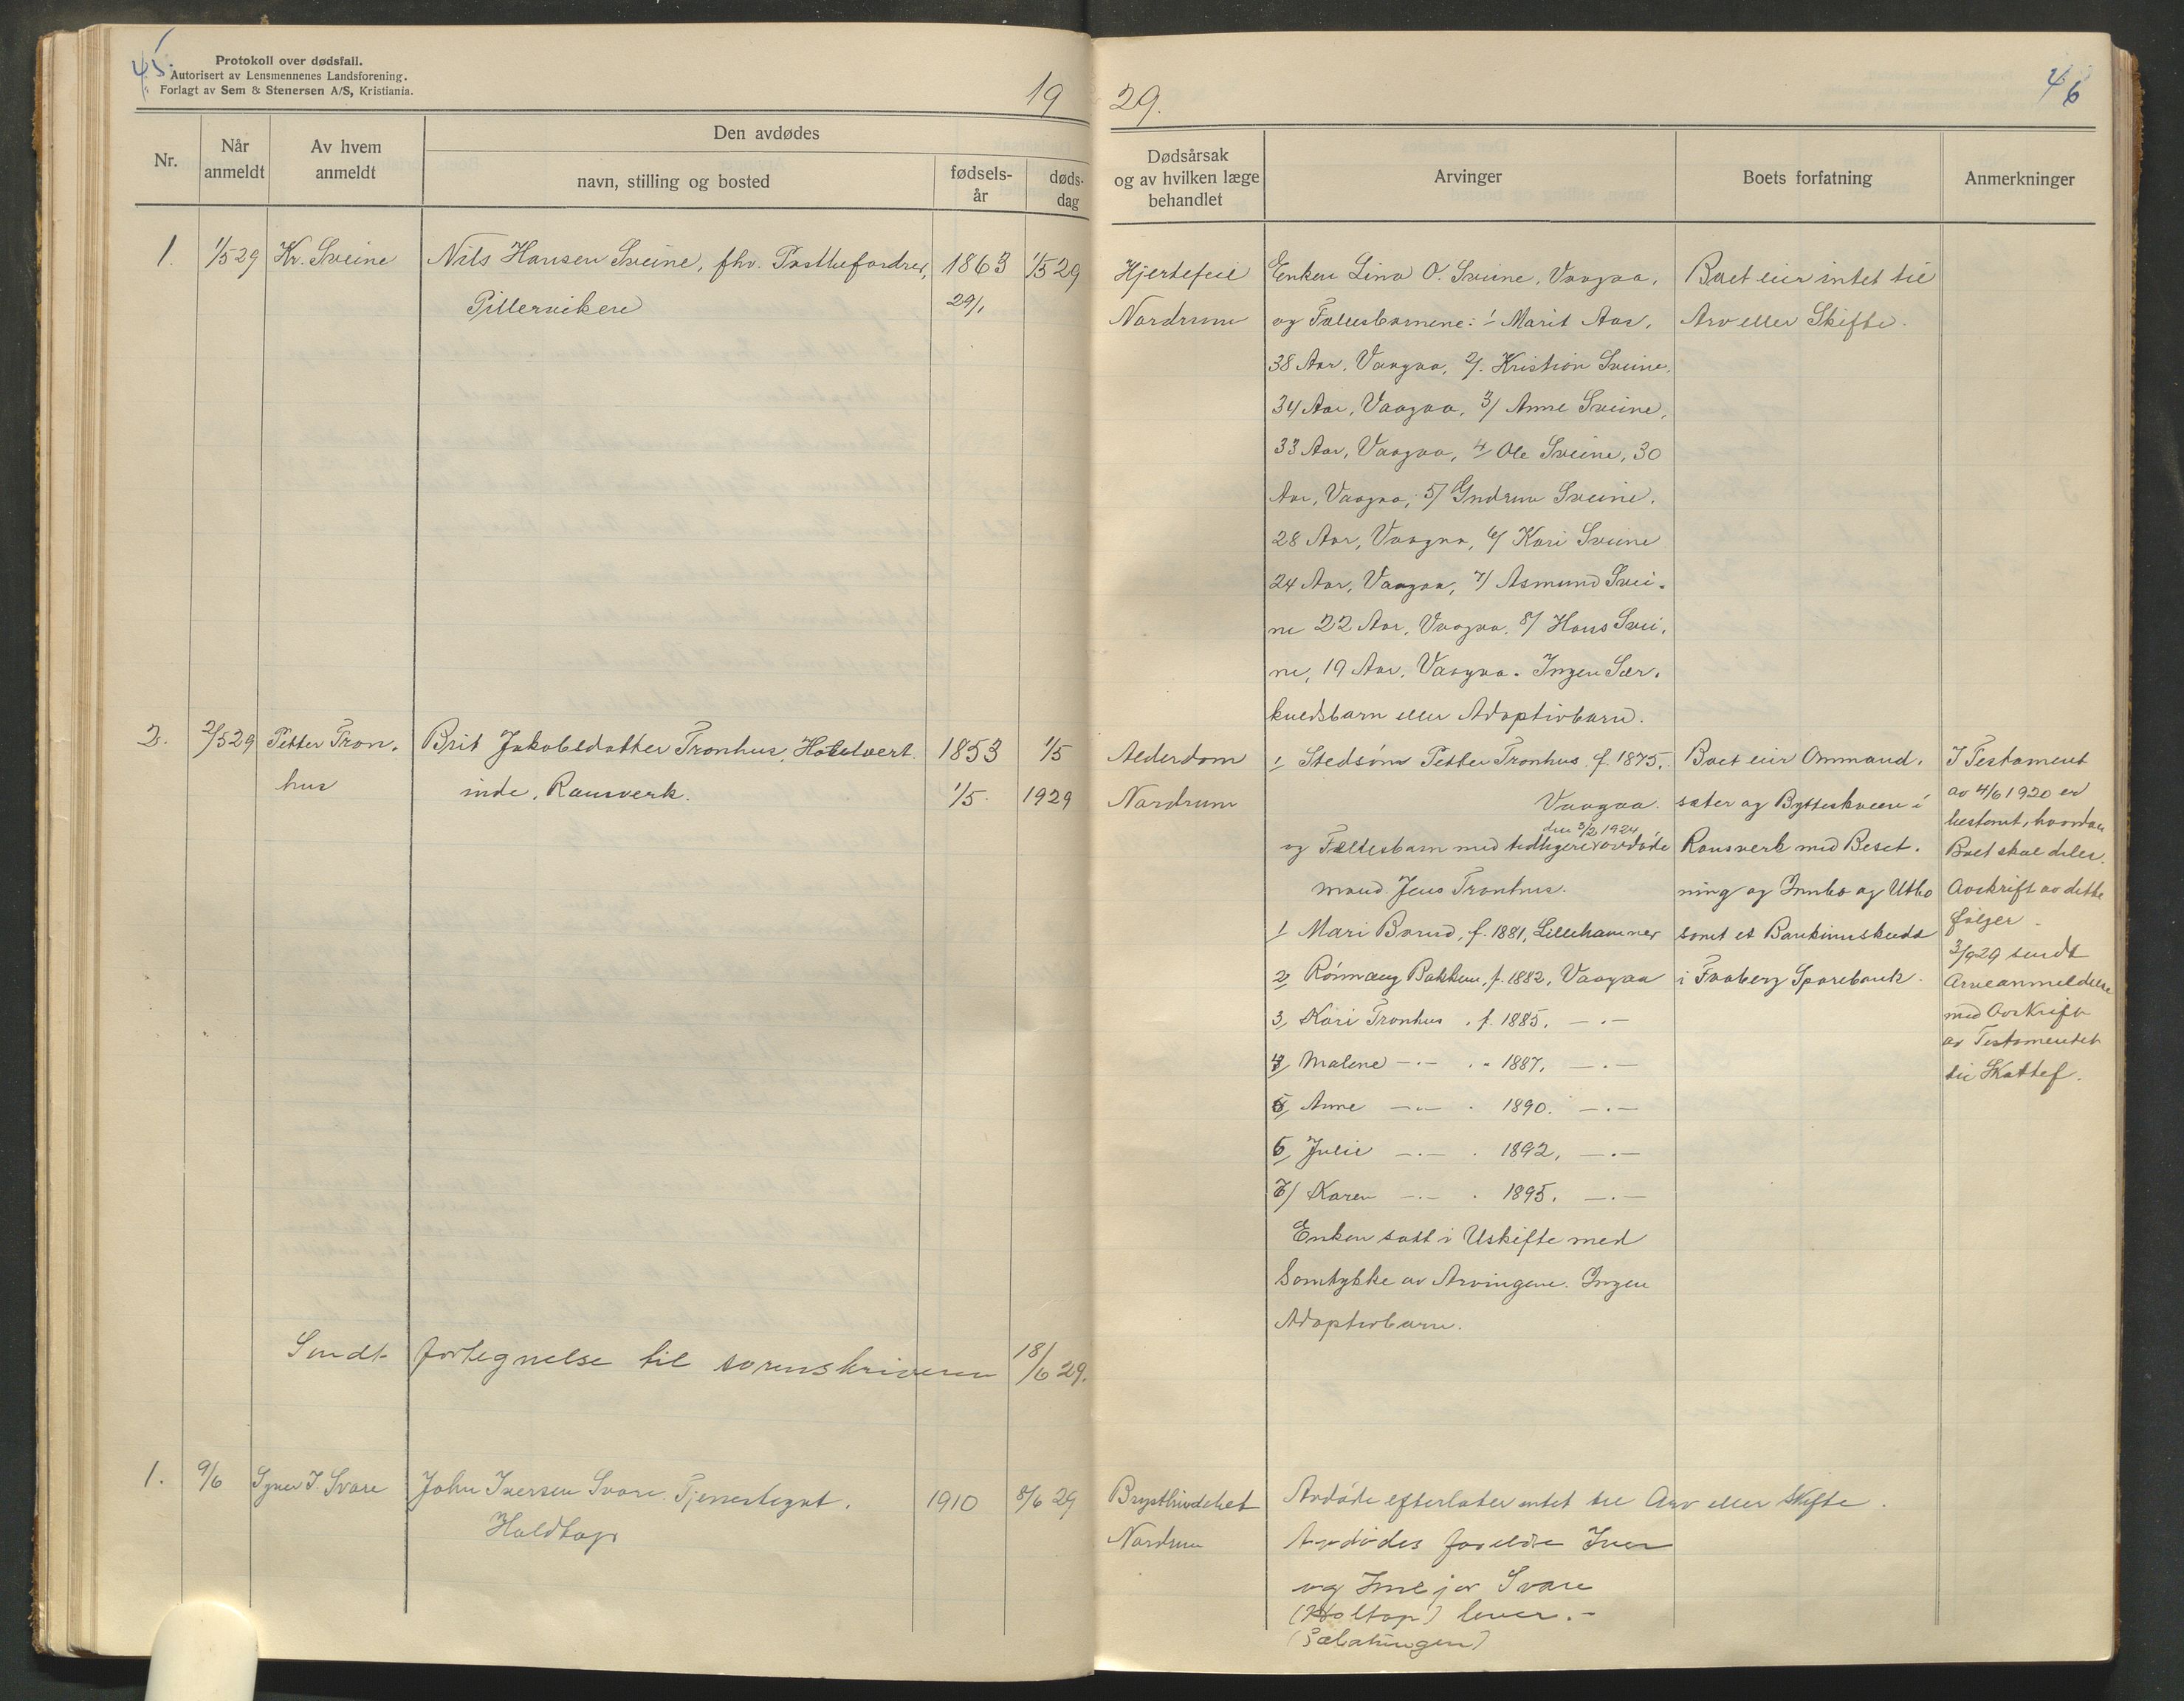 45.
Protokoll over dødsfall.
Autorisert av Lensmennenes Landsforening.
Forlagt av Sem & Stenersen A/S, Kristiania.
19
Nr.
Når anmeldt
Av hvem anmeldt
Den avdødes
navn, stilling og bosted
fødsels-
år
døds-
dag
1. 1/5 29 Kr. Sveine Nils Hansen Sveine, fhv. Postbefordrer, 1863 1/5 29
Pillerviken 29/1
2. 2/5 29 Petter Tron- Brit Jakobsdatter Tronhus, Hotelvert- 1853 1/5
hus inde, Ransverk. 1/5 1929
Sendt fortegnelse til sorenskriveren 18/6 29.
1. 9/6 John Iversen Svare. Tjenestegut. 1910 8/6 29
29.
46
Dødsårsak
og av hvilken læge
behandlet
Arvinger
Boets forfatning
Anmerkninger
Hjertefeil
Nordrum
Enken Lina O. Sveine, Vaagaa,
og Fællesbarnene: 1/ Marit Aas,
38 Aar, Vaagaa, 2/. Kristian Sveine,
34 Aar, Vaagaa, 3/ Anne Sveine,
33 Aar, Vaagaa, 4/ Ole Sveine, 30
Aar, Vaagaa, 5/ Gudrun Sveine,
28 Aar, Vaagaa, 6/ Kari Sveine
24 Aar, Vaagaa, 7/ Asmund Svei-
ne 22 Aar, Vaagaa, 8/ Hans Svei-
ne, 19 Aar, Vaagaa. Ingen Sær-
kuldsbarn eller Adoptivbarn.
Boet eier intet til
Arv eller Skifte.
Alderdom
Nordrum
1/ Stedsøn Petter Tronhus, f. 1875,
Vaagaa.
den 3/2 1924
og Fællesbarn med tidligere avdøde
mand Jens Tronhus.
1/ Mari Barud, f. 1881, Lillehammer
2/ Rønnaug Bakken, f. 1882, Vaagaa
3/ Kari Tronhus, f. 1885, —.—
4/ Malene —.— . - 1887, —.—
5/ Anne —.— . 1890. —.—
6/ Julie —.— . 1892, —.—
7/ Karen —.— . 1895, —.—
Enken satt i Uskifte med
Samtykke av Arvingene. Ingen
Adoptivbarn.
Boet eier
sæter og i
Ransverk med Beset-
ning og Innbo og Utbo
samt et Bankinnskudd
i Faaberg Sparebank.
I Testament
av 4/6 1920 er
bestemt, hvordan
Boet skal deles.
Avskrift av dette
følger.
3/9 29 sendt
Arveanmeldelse
med Avskrift
av Testamentet
til Skattef.
Brysthindebet.
Nordrum
Avdøde efterlater intet til Arv eller Skifte.
Avdødes foreldre Iver
og Svare
(Holtop) lever.-